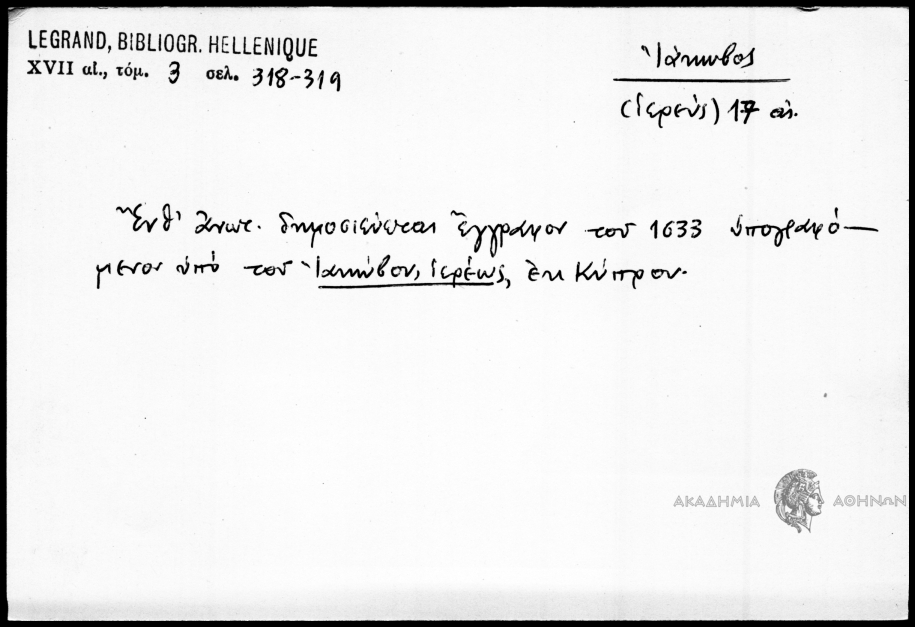 LEGRAND, BIBLIOGR. HELLENIQUE
XVII αἰ., τόμ. 3 σελ. 318-319
Ἰάκωβος
(ἱερεύς) 17 αἰ.
Ἔνθ' ἄνωτ. δημοσιεύεται ἔγγραφον τοῦ 1633 ὑπογραφό-
μενον ὑπό τοῦ Ἰακώβου, ἱερέως, ἐκ Κύπρου.
ΑΚΑΔΗΜΙΑ ΑΘΗΝΩΝ